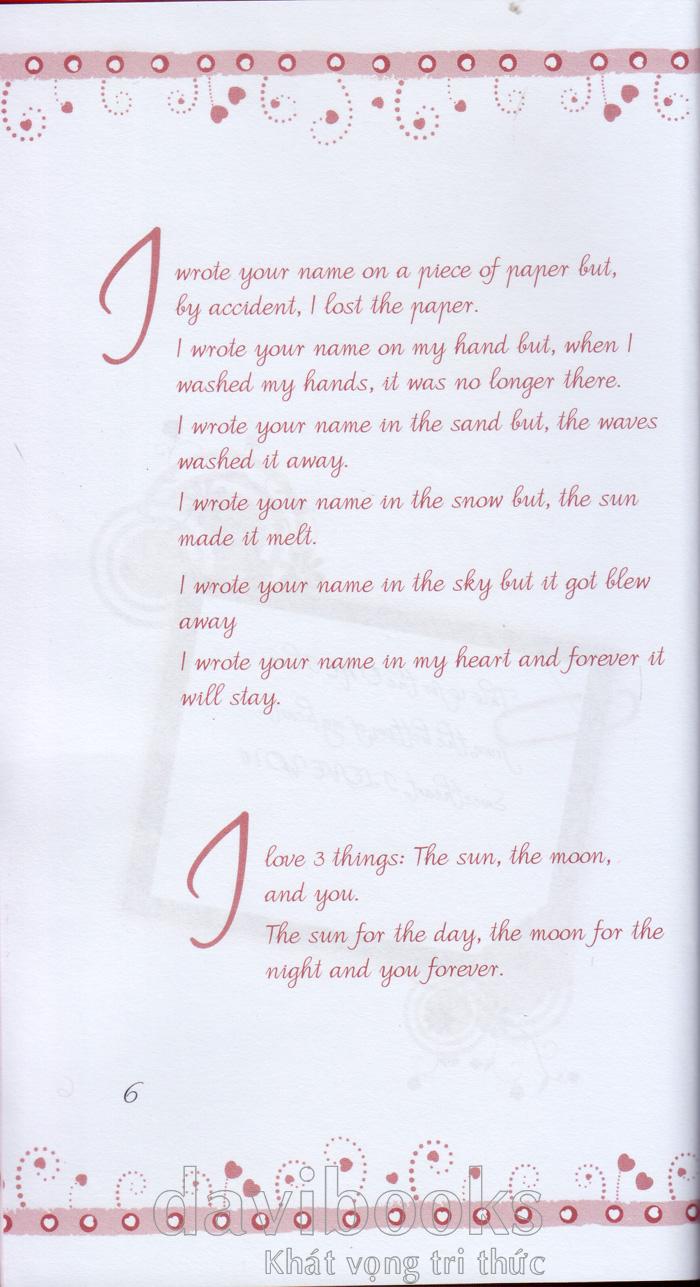 I wrote your name on a piece of paper but,
by accident, I lost the paper.
I wrote your name on my hand but, when I
washed my hands, it was no longer there.
I wrote your name in the sand but, the waves
washed it away.
I wrote your name in the snow but, the sun
made it melt.
I wrote your name in the sky but it got blew
away
I wrote your name in my heart and forever it
will stay.
I love 3 things: The sun, the moon,
and you.
The sun for the day, the moon for the
night and you forever.
6
davibooks
Khát vọng tri thức